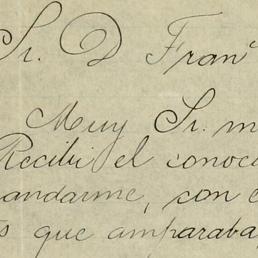 Sr. D Fran
Muy Sr. m
Recibi el conoc
andarme, con e
s que amparaba